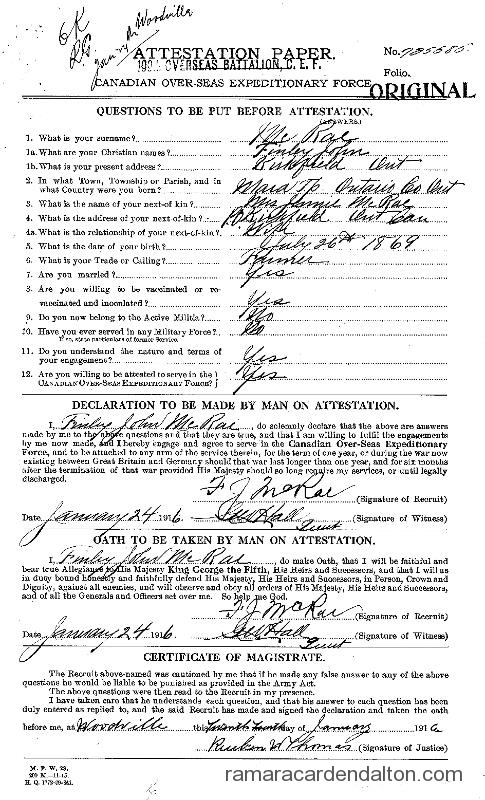 OK
January
Woodville
ATTESTATION PAPER.
No.
OVERSEAS BATTALION, C. E. F.
Folio.
CANADIAN OVER-SEAS EXPEDITIONARY FORCE
ORIGINAL
QUESTIONS TO BE PUT BEFORE ATTESTATION.
(ANSWERS.)
1. What is your surname? Mc Rae
1a. What are your Christian names? Finley John
1b. What is your present address? Ont
2. In what Town, Township or Parish, and in
what Country were you born? Mara Tp. Ontario Co Ont
3. What is the name of your next-of-kin? Mrs Jennie Mc Rae
4. What is the address of your next-of-kin? Ont Can
4a. What is the relationship of your next-of-kin? Wife
5. What is the date of your birth? July 26th 1869
6. What is your Trade or Calling? Farmer
7. Are you married? Yes
8. Are you willing to be vaccinated or re-
vaccinated and inoculated? Yes
9. Do you now belong to the Active Militia? No
10. Have you ever served in any Military Force? No
If so, state particulars of former Service.
11. Do you understand the nature and terms of
your engagement? Yes
12. Are you willing to be attested to serve in the
CANADIAN OVER-SEAS EXPEDITIONARY FORCE? Yes
DECLARATION TO BE MADE BY MAN ON ATTESTATION.
I, Finley John McRae, do solemnly declare that the above answers
made by me to the above questions and that they are true, and that I am willing to fulfil the engagements
by me now made, and I hereby engage and agree to serve in the Canadian Over-Seas Expeditionary
Force, and to be attached to any arm of the service therein, for the term of one year, or during the war now
existing between Great Britain and Germany should that war last longer than one year, and for six months
after the termination of that war provided His Majesty should so long require my services, or until legally
discharged.
F J McRae (Signature of Recruit)
Date January 24 1916. Hall Lieut (Signature of Witness)
OATH TO BE TAKEN BY MAN ON ATTESTATION.
I, Finley John McRae, do make Oath, that I will be faithful and
bear true Allegiance to His Majesty King George the Fifth, His Heirs and Successors, and that I will as
in duty bound honestly and faithfully defend His Majesty, His Heirs and Successors, in Person, Crown and
Dignity, against all enemies, and will observe and obey all orders of His Majesty, His Heirs and Successors,
and of all the Generals and Officers set over me. So help me God.
F J McRae (Signature of Recruit)
Date January 24 1916. Hall Lieut (Signature of Witness)
CERTIFICATE OF MAGISTRATE.
The Recruit above-named was cautioned by me that if he made any false answer to any of the above
questions he would be liable to be punished as provided in the Army Act.
The above questions were then read to the Recruit in my presence.
I have taken care that he understands each question, and that his answer to each question has been
duly entered as replied to, and the said Recruit has made and signed the declaration and taken the oath
before me, at Woodville this day of January 1916
Reuben W Thomas (Signature of Justice)
M. F. W. 23.
200 M.—11-15.
H. Q. 1772-39-241.
ramaracardendalton.com